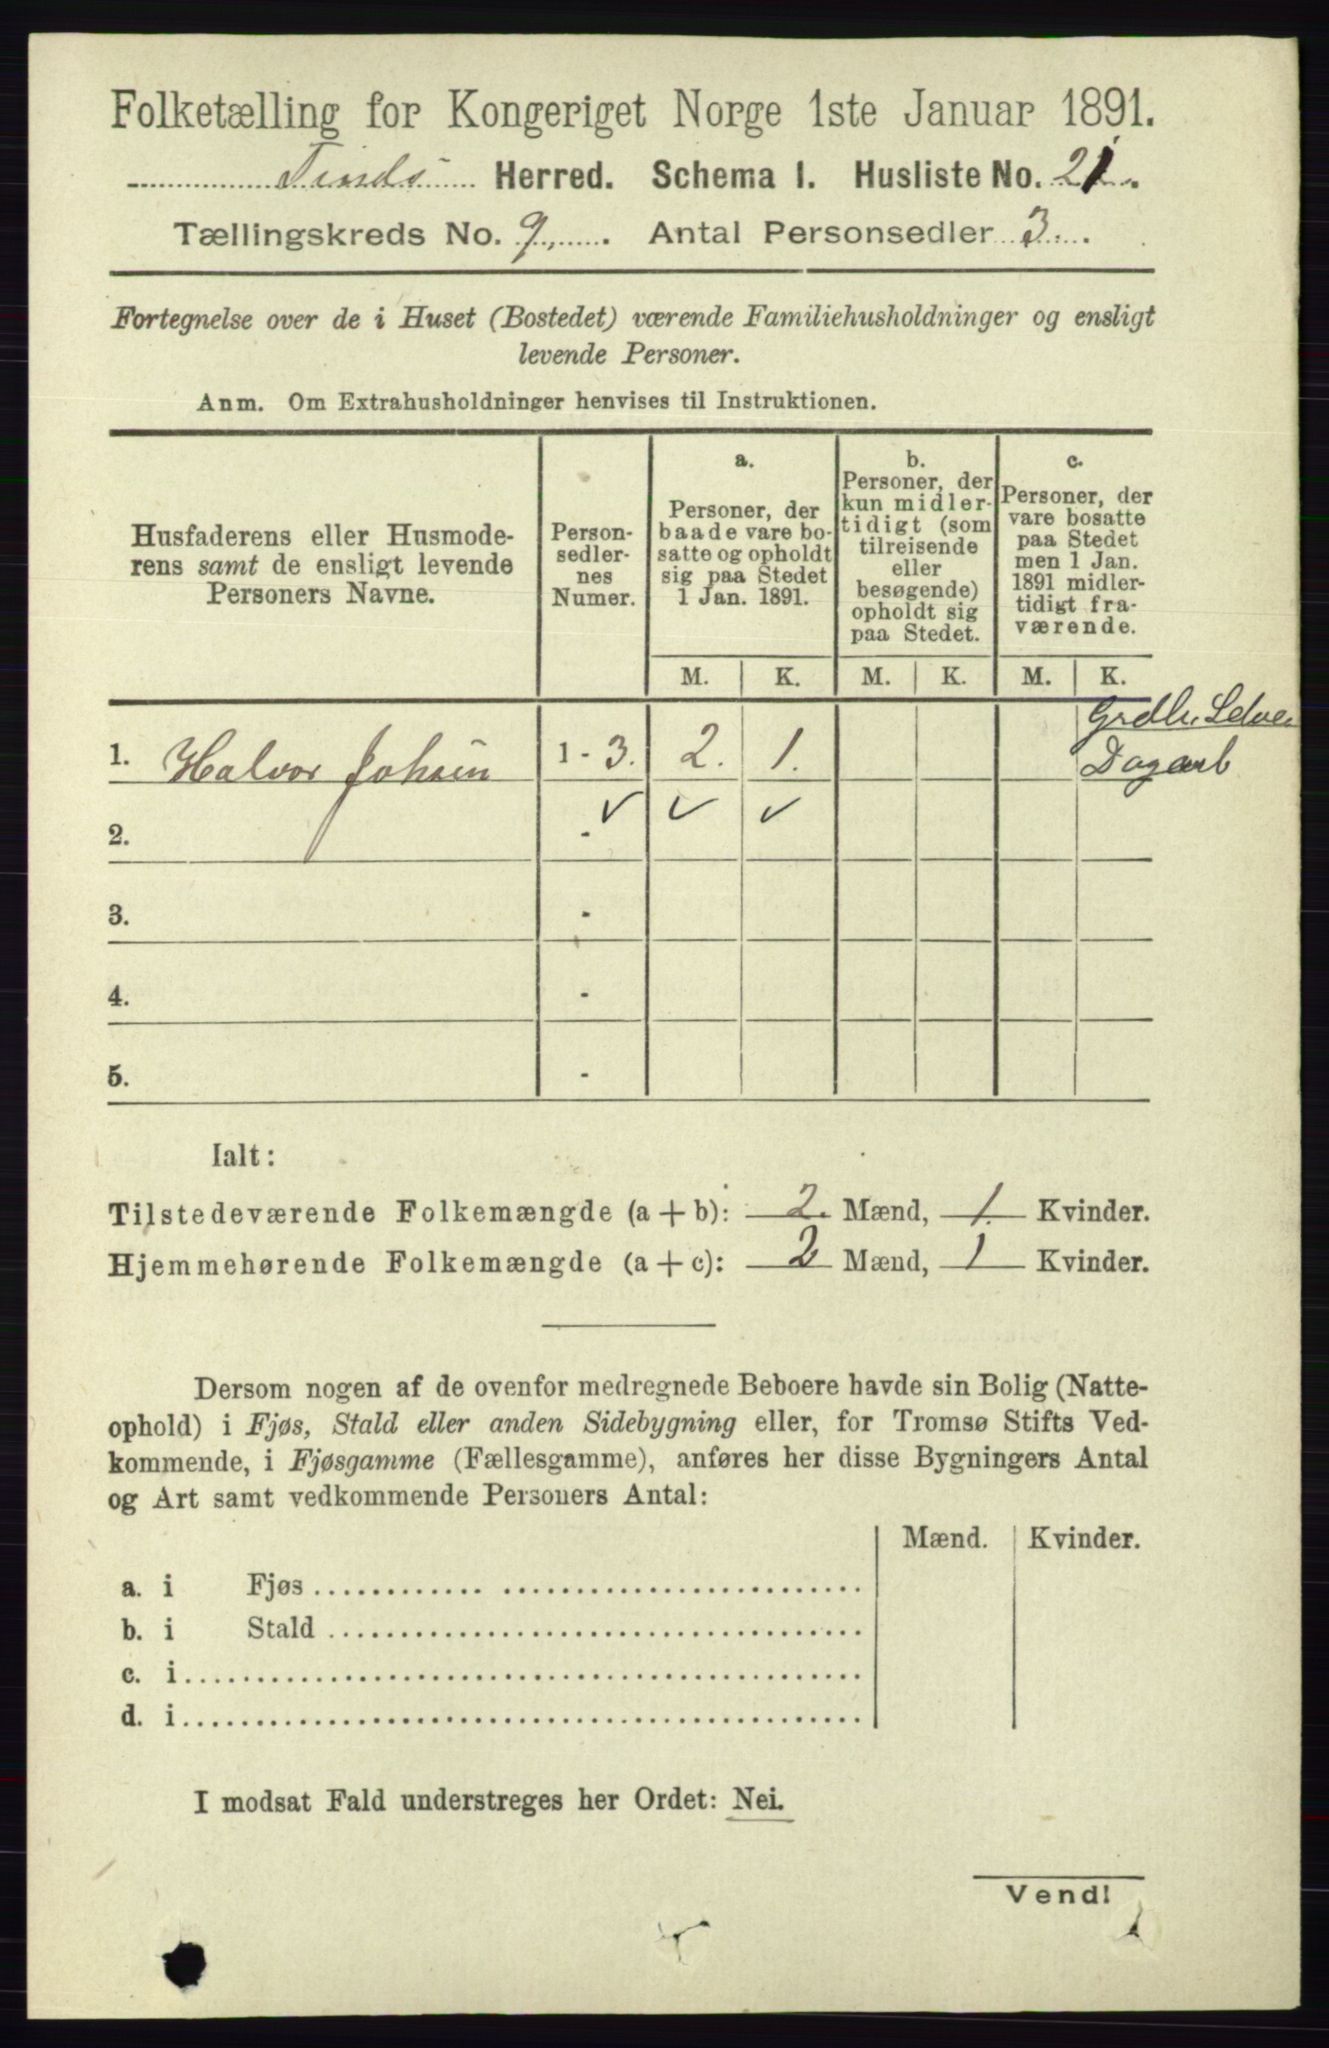 Folketælling for Kongeriget Norge 1ste Januar 1891.
Tinds Herred. Schema I. Husliste No. 21.
Tællingskreds No. 9. Antal Personsedler 3.
Fortegnelse over de i Huset (Bostedet) værende Familiehusholdninger og ensligt
levende Personer.
Anm. Om Extrahusholdninger henvises til Instruktionen.
Husfaderens eller Husmode-
rens samt de ensligt levende
Personers Navne.
Person-
sedler-
nes
Numer.
a.
Personer, der
baade vare bo-
satte og opholdt
sig paa Stedet
1 Jan. 1891.
b.
Personer, der
kun midler-
tidigt (som
tilreisende
eller
besøgende)
opholdt sig
paa Stedet.
c.
Personer, der
vare bosatte
paa Stedet
men 1 Jan.
1891 midler-
tidigt fra-
værende.
M. K. M. K. M. K.
1. Halvor Johsen 1 - 3. 2. 1.
Dagarb
2. - ✓ ✓ ✓
3. -
4. -
5. -
Ialt:
Tilstedeværende Folkemængde (a + b): 2. Mænd, 1. Kvinder.
Hjemmehørende Folkemængde (a + c): 2 Mænd, 1 Kvinder.
Dersom nogen af de ovenfor medregnede Beboere havde sin Bolig (Natte-
ophold) i Fjøs, Stald eller anden Sidebygning eller, for Tromsø Stifts Ved-
kommende, i Fjøsgamme (Fællesgamme), anføres her disse Bygningers Antal
og Art samt vedkommende Personers Antal:
Mænd. Kvinder.
a. i Fjøs
b. i Stald
c. i
d. i
I modsat Fald understreges her Ordet: Nei.
Vend!